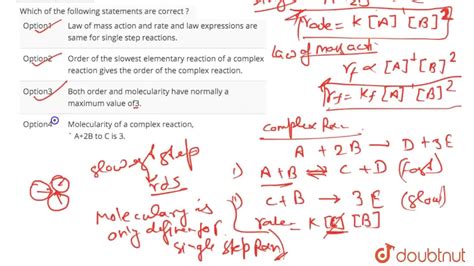 Which of the following statements are correct ?
Option1 Law of mass action and rate and law expressions are
same for single step reactions.
Option2 Order of the slowest elementary reaction of a complex
reaction gives the order of the complex reaction.
Option3 Both order and molecularity have normally a
maximum value of3.
Option4 Molecularity of a complex reaction,
` A+2B to C is 3.
slowest step
rds
Molecularity is
only defined for
single step Rxn
rate = K [A]¹ [B]²
law of mass action
rf ∝ [A]¹ [B]²
rf = Kf [A]¹ [B]²
Complex Rxn
A + 2B → D + 3E
i) A + B ⇌ C + D (fast)
ii) C + B → 3E (slow)
rate = K [C] [B]
doubtnut